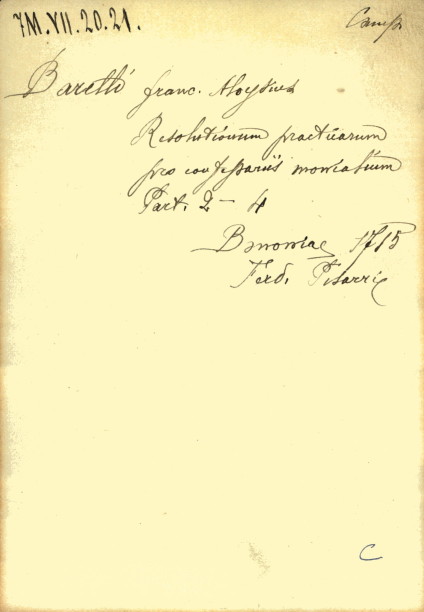 7M.VII.20.21.
Camp
Barelli Franc. Aloysius
Resolutionum practicarum
pro confessariis monialium
Part. 2 - 4
Bononiae 1715
Ferd. Pisarri
C